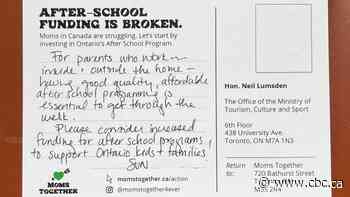 AFTER-SCHOOL
FUNDING IS BROKEN.
Moms in Canada are struggling. Let's start by
investing in Ontario's After School Program.
For parents who work
inside & outside the home -
having good quality, affordable
after school programming is
essential to get through the
week.
Please consider increased
funding for after school programs,
to support Ontario kids + families
MOMS
TOGETHER
momstogether.ca/action
@momstogether4ever
Hon. Neil Lumsden
The Office of the Ministry of
Tourism, Culture and Sport
6th Floor
438 University Ave.
Toronto, ON M7A 1N3
Return to:
Moms Together
720 Bathurst Street
M5S 2R4
www.cbc.ca